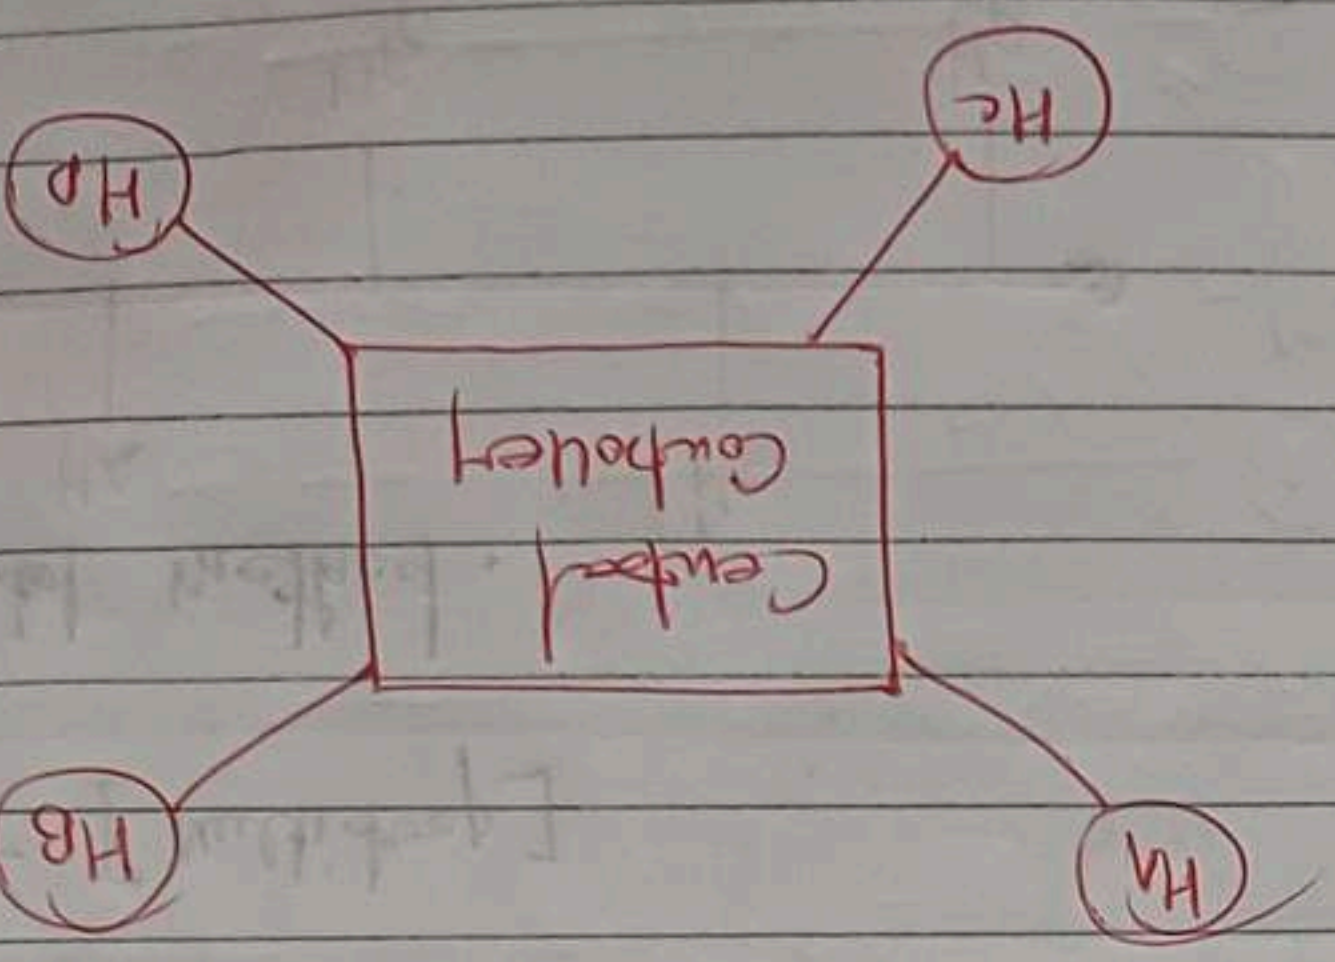 HA
HB
Central
Controller
HC
HD